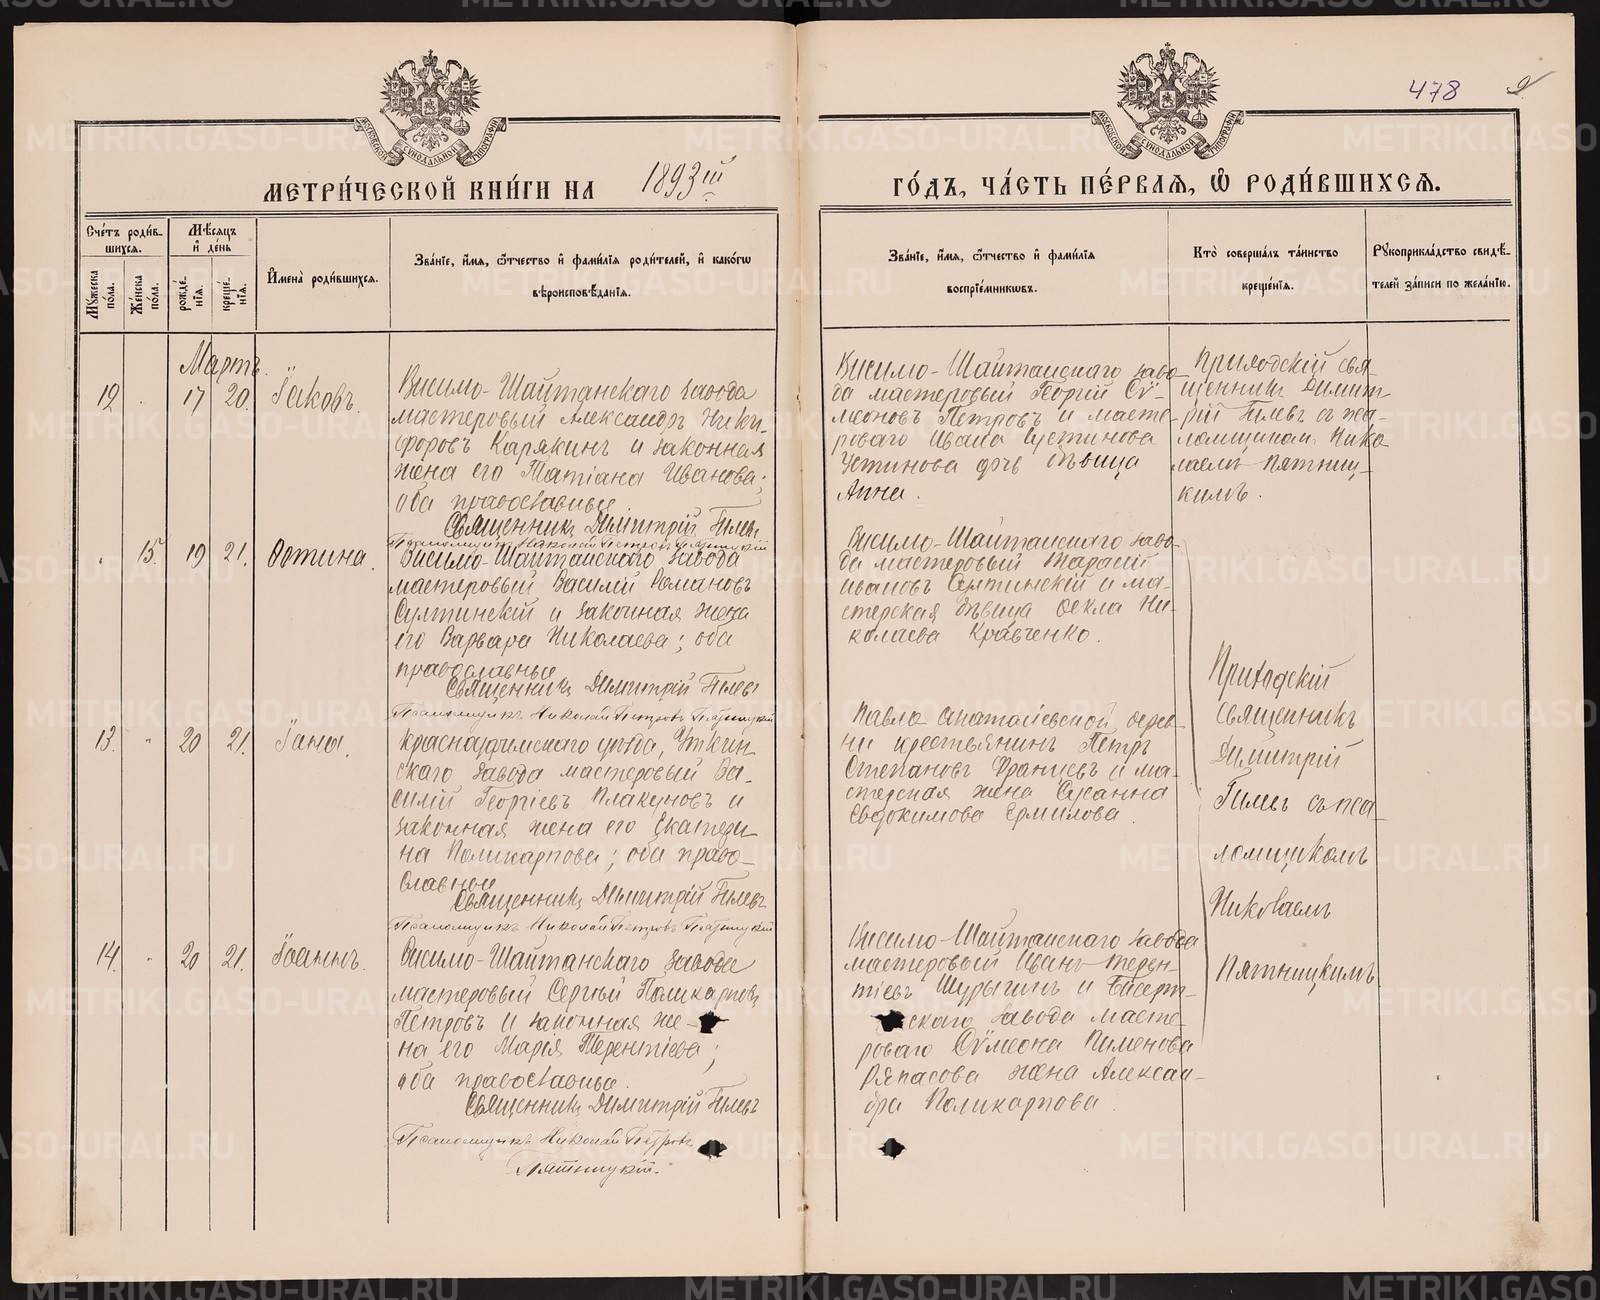 478
МЕТРИ́ЧЕСКОЙ КНИ́ГИ НА 1893й
ГО́ДЪ, ЧА́СТЬ ПЕ́РВАЯ, Ѿ РОДИ́ВШИХСЯ.
Сче́тъ роди́в-
шихся.
Мꙋ́жеска
по́ла.
Же́нска
по́ла.
Мѣ́сяцъ
и҆ де́нь
рожде́-
нїя.
креще́-
нїя.
И҆мена̀ роди́вшихся.
Зва́нїе, и҆́мя, ѻ҆́тчество и҆ фами́лїя роди́телей, и҆ како́гѡ
вѣроисповѣ́данїя.
Зва́нїе, и҆́мя, ѻ҆́тчество и҆ фами́лїя
воспрїе́мникѡвъ.
Кто̀ соверша́лъ та́инство
креще́нїя.
Рꙋкоприкла́дство свидѣ́-
телей за́писи по жела́нїю.
Мартъ.
12 . 17 20. Іаковъ.
Висимо-Шайтанскаго завода
мастеровый Александръ Ники-
форовъ Карякинъ и законная
жена его Татіана Иванова;
оба православные.
Священникъ Димитрій Гилевъ
Псаломщикъ Николай Петровъ Пятницкій
Висимо-Шайтанскаго заво-
да мастеровый Георгій Сѵ-
меоновъ Петровъ и масте-
роваго Ивана Іустинова
Устинова дочь дѣвица
Анна.
Приходскій свя-
щенникъ Димит-
рій Гилевъ съ пса-
ломщикомъ Нико-
лаемъ Пятниц-
кимъ.
. 15. 19 21.
Висимо-Шайтанскаго завода
мастеровый Василій Романовъ
Султинскій и законная жена
его Варвара Николаева; оба
православные
Священникъ Димитрій Гилевъ
Псаломщикъ Николай Петровъ Пятницкій
Висимо-Шайтанскаго заво-
да мастеровый Тарасій
Ивановъ Султинскій и ма-
стерская дѣвица Ѳекла Ни-
колаева Кравченко.
13. " 20 21.
Красноуфимскаго уѣзда, Уткин-
скаго завода мастеровый Ва-
силій Георгіевъ Плакуновъ и
законная жена его Екатери-
на Поликарпова; оба право-
славные
Священникъ Димитрій Гилевъ
Псаломщикъ Николай Петровъ Пятницкій
Павло-Анатольевской дерев-
ни крестьянинъ Петръ
Степановъ Францевъ и ма-
стерская жена Сусанна
Евдокимова Ермилова.
14. " 20 21. Іоаннъ.
Висимо-Шайтанскаго завода
мастеровый Сергѣй Поликарповъ
Петровъ и законная же-
на его Марія Терентіева;
оба православные.
Священникъ Димитрій Гилевъ
Псаломщикъ Николай Петровъ
Пятницкій.
Висимо-Шайтанскаго завода
мастеровый Иванъ Терен-
тіевъ Шурыгинъ и Бисерт-
скаго завода масте-
роваго Сѵмеона Пименова
Ряпасова жена Алексан-
дра Поликарпова.
Приходскій
священникъ
Димитрій
Гилевъ съ пса-
ломщикомъ
Николаемъ
Пятницкимъ
METRIKI.GASO-URAL.RU